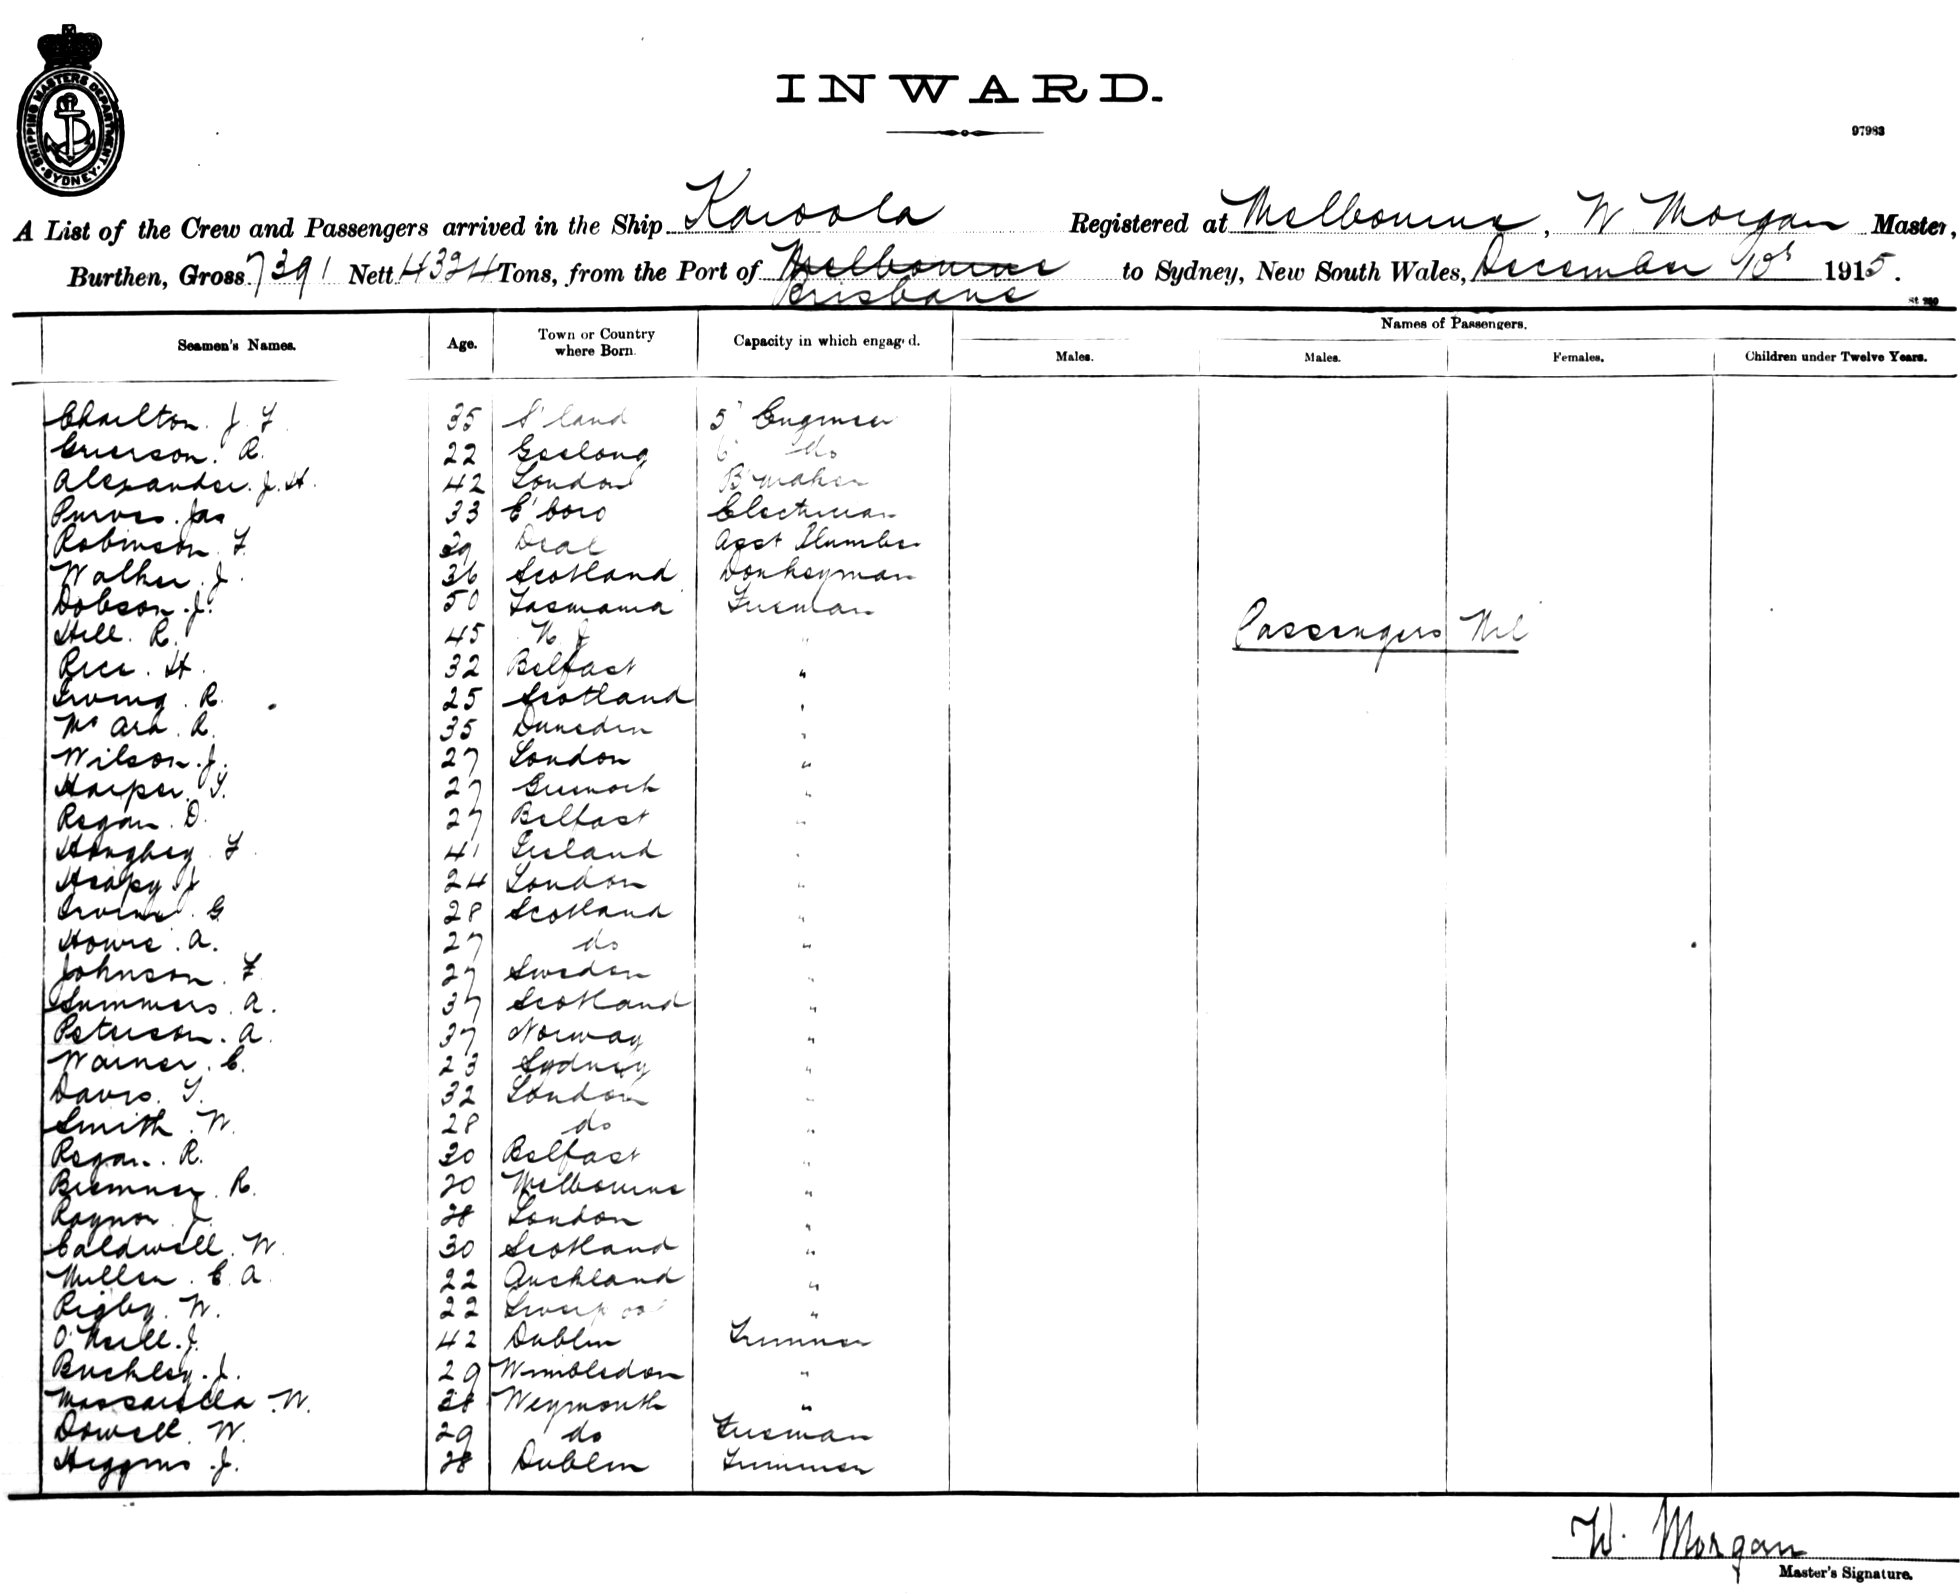 SHIPPING MASTERS DEPARTMENT SYDNEY
INWARD.
97983
A List of the Crew and Passengers arrived in the Ship Karoola Registered at Melbourne, W Morgan Master,
Burthen, Gross 7391 Nett 4324 Tons, from the Port of Melbourne to Sydney, New South Wales, December 1915.
Brisbane
Seamen's Names. Age. Town or Country where Born. Capacity in which engaged. Names of Passengers.
Males. Males. Females. Children under Twelve Years.
Charlton. J. F. 35 S'land 5' Engineer
Grierson. R. 22 Geelong 6' do
Alexander. J. H. 42 London B'maker
Purves. Jas 33 E'boro Electrician
Robinson. F. 29 Deal Asst Plumber
Walker. J. 36 Scotland Donkeyman
Dobson. J. 50 Tasmania Fireman
Hill. R. 45 "
Passengers Nil
Rice. H. 32 Belfast "
Irving. R. 25 Scotland "
McAra. R. 35 Dunedin "
Wilson. J. 27 London "
Harper. T. 27 Greenock "
Regan. D. 27 Belfast "
Haughey. F. 41 Ireland "
Heapy. J 24 London "
Irvine. G 28 Scotland "
Howie. A. 27 do "
Johnson. F. 27 Sweden "
Summers. A. 37 Scotland "
Peterson. A. 37 Norway "
Warner. C. 23 Sydney "
Davis. T. 32 London "
Smith. W. 28 do "
Regan. R. 30 Belfast "
Bremner. R. 20 Melbourne "
Raynor. J. 28 London "
Caldwell. W. 30 Scotland "
Miller. C. A. 22 Auckland "
Rigby. W. 22 Liverpool "
O'Neill. J. 42 Dublin Trimmer
Buckley. J. 29 Wimbledon "
Massarella. W. 28 Weymouth "
Dowell. W. 29 do Fireman
Higgins. J. 28 Dublin Trimmer
W. Morgan
Master's Signature.